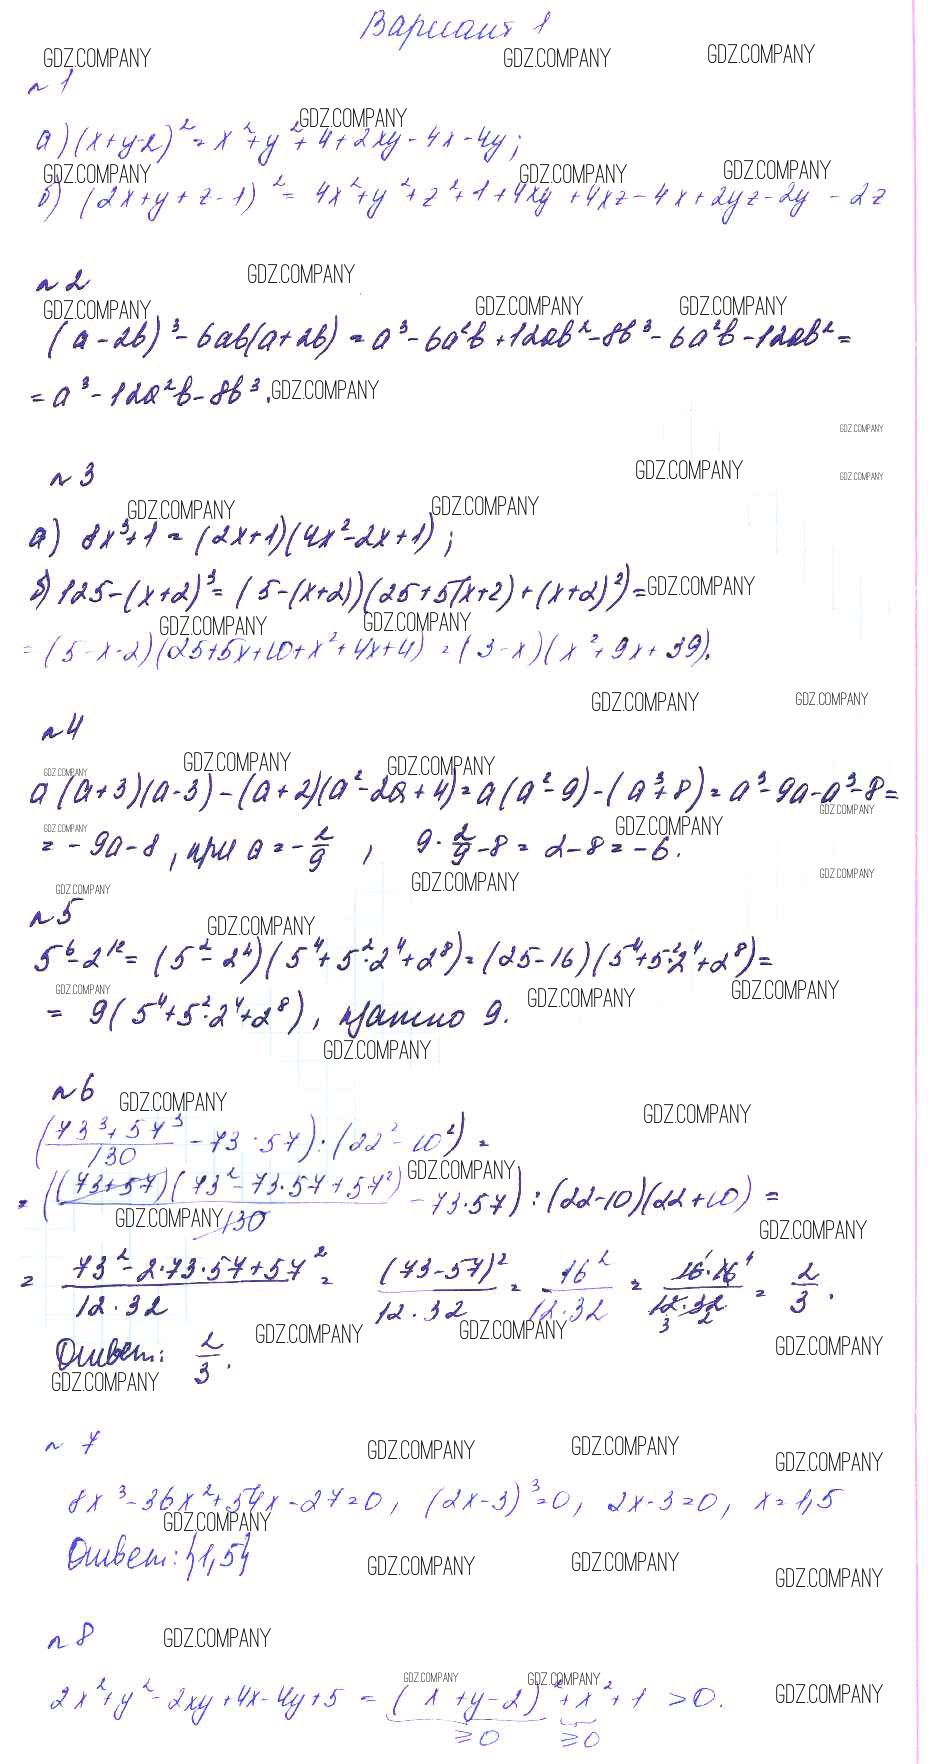 Вариант 1
GDZ.COMPANY GDZ.COMPANY GDZ.COMPANY
№1
GDZ.COMPANY
а) (x+y-2)² = x²+y²+4+2xy-4x-4y;
GDZ.COMPANY GDZ.COMPANY GDZ.COMPANY
б) (2x+y+z-1)² = 4x²+y²+z²+1+4xy+4xz-4x+2yz-2y-2z
№2 GDZ.COMPANY
GDZ.COMPANY GDZ.COMPANY GDZ.COMPANY
(a-2b)³-6ab(a+2b) = a³-6a²b+12ab²-8b³-6a²b-12ab² =
= a³-12a²b-8b³. GDZ.COMPANY
GDZ.COMPANY
№3 GDZ.COMPANY GDZ.COMPANY
GDZ.COMPANY GDZ.COMPANY
а) 8x³+1 = (2x+1)(4x²-2x+1);
б) 125-(x+2)³ = (5-(x+2))(25+5(x+2)+(x+2)²) = GDZ.COMPANY
GDZ.COMPANY GDZ.COMPANY
= (5-x-2)(25+5x+10+x²+4x+4) = (3-x)(x²+9x+39).
GDZ.COMPANY GDZ.COMPANY
№4
GDZ.COMPANY GDZ.COMPANY GDZ.COMPANY
a(a+3)(a-3)-(a+2)(a²-2a+4) = a(a²-9)-(a³+8) = a³-9a-a³-8 =
GDZ.COMPANY GDZ.COMPANY GDZ.COMPANY
= -9a-8, при a = -2/9, 9·2/9-8 = 2-8 = -6.
GDZ.COMPANY GDZ.COMPANY GDZ.COMPANY
№5 GDZ.COMPANY
5⁶-2¹² = (5²-2⁴)(5⁴+5²·2⁴+2⁸) = (25-16)(5⁴+5²·2⁴+2⁸) =
GDZ.COMPANY GDZ.COMPANY GDZ.COMPANY
= 9(5⁴+5²·2⁴+2⁸), кратно 9.
GDZ.COMPANY
№6 GDZ.COMPANY GDZ.COMPANY
((73³+57³)/130 - 73·57):(22²-10²) =
GDZ.COMPANY
= ((73+57)(73²-73·57+57²)/130 - 73·57):(22-10)(22+10) =
GDZ.COMPANY GDZ.COMPANY
= (73²-2·73·57+57²)/(12·32) = (73-57)²/(12·32) = 16²/(12·32) = (16·16)/(12·32) = 2/3.
GDZ.COMPANY GDZ.COMPANY GDZ.COMPANY
Ответ: 2/3.
GDZ.COMPANY
№7 GDZ.COMPANY GDZ.COMPANY GDZ.COMPANY
8x³-36x²+54x-27=0, (2x-3)³=0, 2x-3=0, x=1,5
GDZ.COMPANY
Ответ: {1,5}
GDZ.COMPANY GDZ.COMPANY GDZ.COMPANY
№8 GDZ.COMPANY
GDZ.COMPANY GDZ.COMPANY GDZ.COMPANY
2x²+y²-2xy+4x-4y+5 = (x+y-2)²+x²+1 >0.
≥0 ≥0